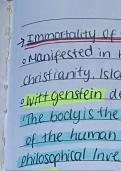 → Immortality of
• Manifested in
Christianity, Isla
• Wittgenstein de
The body is the
of the human
philosophical Inve